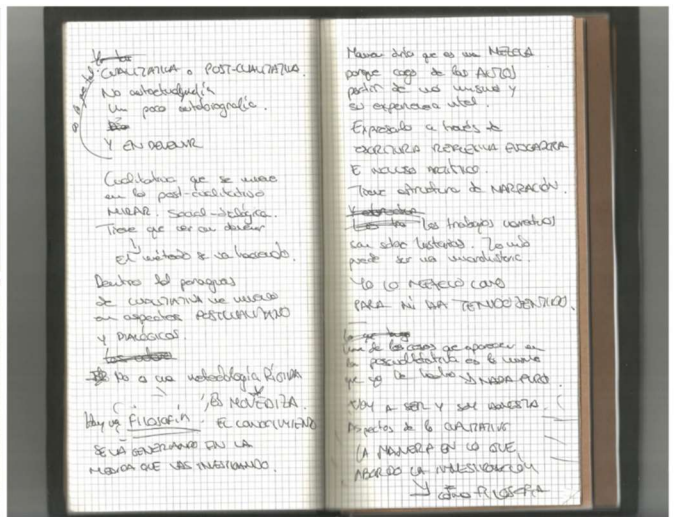 CUALITATIVA o POST-CUALITATIVA.
No autoetnografía
Un poco autobiografía.
Y EN DEVENIR
Cualitativa que se mueve
en lo post-cualitativo
MIRAR. Social-dialógica.
Tiene que ver con devenir
El método se va haciendo.
Dentro del paraguas
de CUALITATIVA me muevo
en aspectos POSTCUALITATIVO
Y DIALÓGICOS.
No a una metodología RÍGIDA
ES MOVEDIZA.
Hay una FILOSOFÍA. EL CONOCIMIENTO
SE VA GENERANDO EN LA
MEDIDA QUE VAS INVESTIGANDO.
diría que es una MEZCLA
porque cojo de las AUTOS
partir de uno mismo y
su experiencia vital.
Expresarlo a través de
ESCRITURA REFLEXIVA EVOCADORA
E INCLUSO ARTÍSTICO.
Tiene estructura de NARRACIÓN.
Los trabajos narrativos
son sobre historias. Lo mío
puede ser una microhistoria.
YO LO MEZCLO COMO
PARA MI HA TENIDO SENTIDO.
Una de las cosas que aparecen en
la postcualitativa es la manera
que yo he hecho NADA PURO
Voy A SER Y SOY HONESTA.
Aspectos de lo CUALITATIVO
LA MANERA EN LA QUE
ABORDO LA INVESTIGACIÓN
como FILOSOFÍA